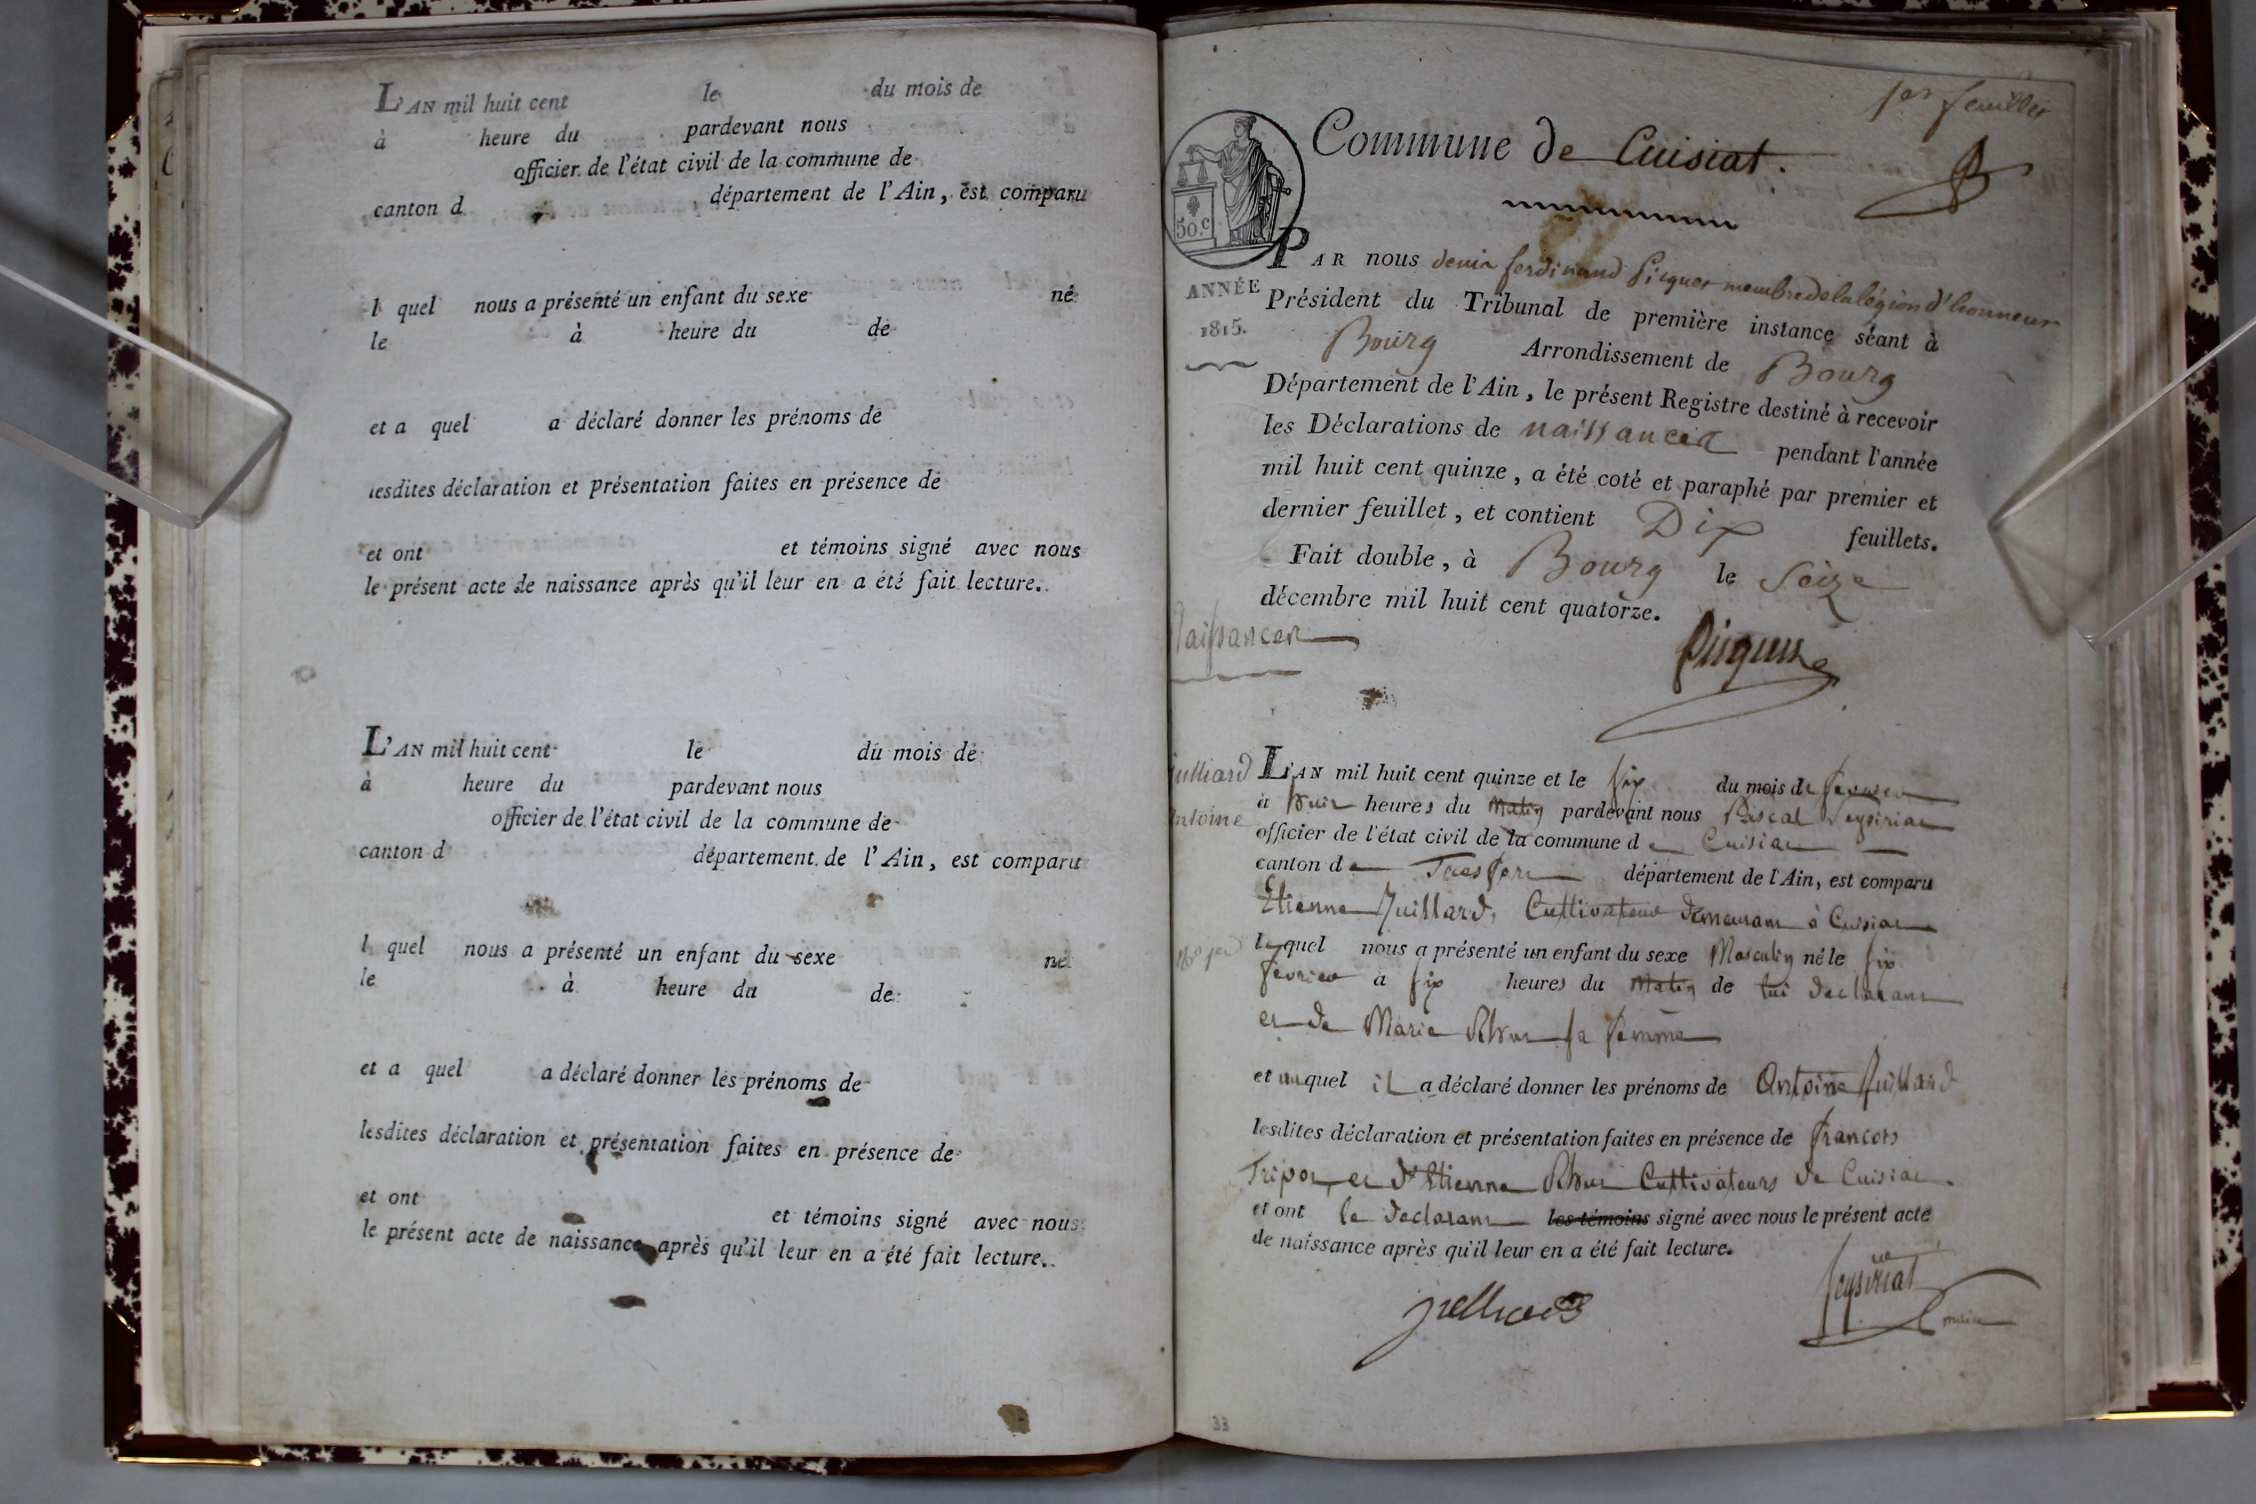 L'AN mil huit cent le du mois de
à heure du pardevant nous
officier de l'état civil de la commune de
canton d département de l'Ain, est comparu
l quel nous a présenté un enfant du sexe né
le à heure du de
et a quel a déclaré donner les prénoms de
lesdites déclaration et présentation faites en présence de
et ont et témoins signé avec nous
le présent acte de naissance après qu'il leur en a été fait lecture.
L'AN mil huit cent le du mois de
à heure du pardevant nous
officier de l'état civil de la commune de
canton d département de l'Ain, est comparu
l quel nous a présenté un enfant du sexe né
le à heure du de
et a quel a déclaré donner les prénoms de
lesdites déclaration et présentation faites en présence de
et ont et témoins signé avec nous
le présent acte de naissance après qu'il leur en a été fait lecture.
1er feuillet
Commune de Cuisiat.
50.c
ANNÉE
1815.
PAR nous denis ferdinand Picquet membre de la légion d'honneur
Président du Tribunal de première instance séant à
Bourg Arrondissement de Bourg
Département de l'Ain, le présent Registre destiné à recevoir
les Déclarations de naissances pendant l'année
mil huit cent quinze, a été coté et paraphé par premier et
dernier feuillet, et contient Dix feuillets.
Fait double, à Bourg le Seize
décembre mil huit cent quatorze.
Naissances
Picquet
Juilliard
Antoine
L'AN mil huit cent quinze et le six du mois de fevrier
à huit heures du Matin pardevant nous Pascal Peysiriat
officier de l'état civil de la commune de Cuisiat
canton de Treffort département de l'Ain, est comparu
Etienne Juillard, Cultivateur demeurant à Cuisiat
lequel nous a présenté un enfant du sexe Masculin né le six
fevrier à six heures du Matin de lui declarant
et de Marie sa femme
et auquel il a déclaré donner les prénoms de Antoine Juillard
lesdites déclaration et présentation faites en présence de francois
et d'Etienne Cultivateurs de Cuisiat.
et ont le declarant les témoins signé avec nous le présent acte
de naissance après qu'il leur en a été fait lecture.
juilliard
peysiriat
maire
33